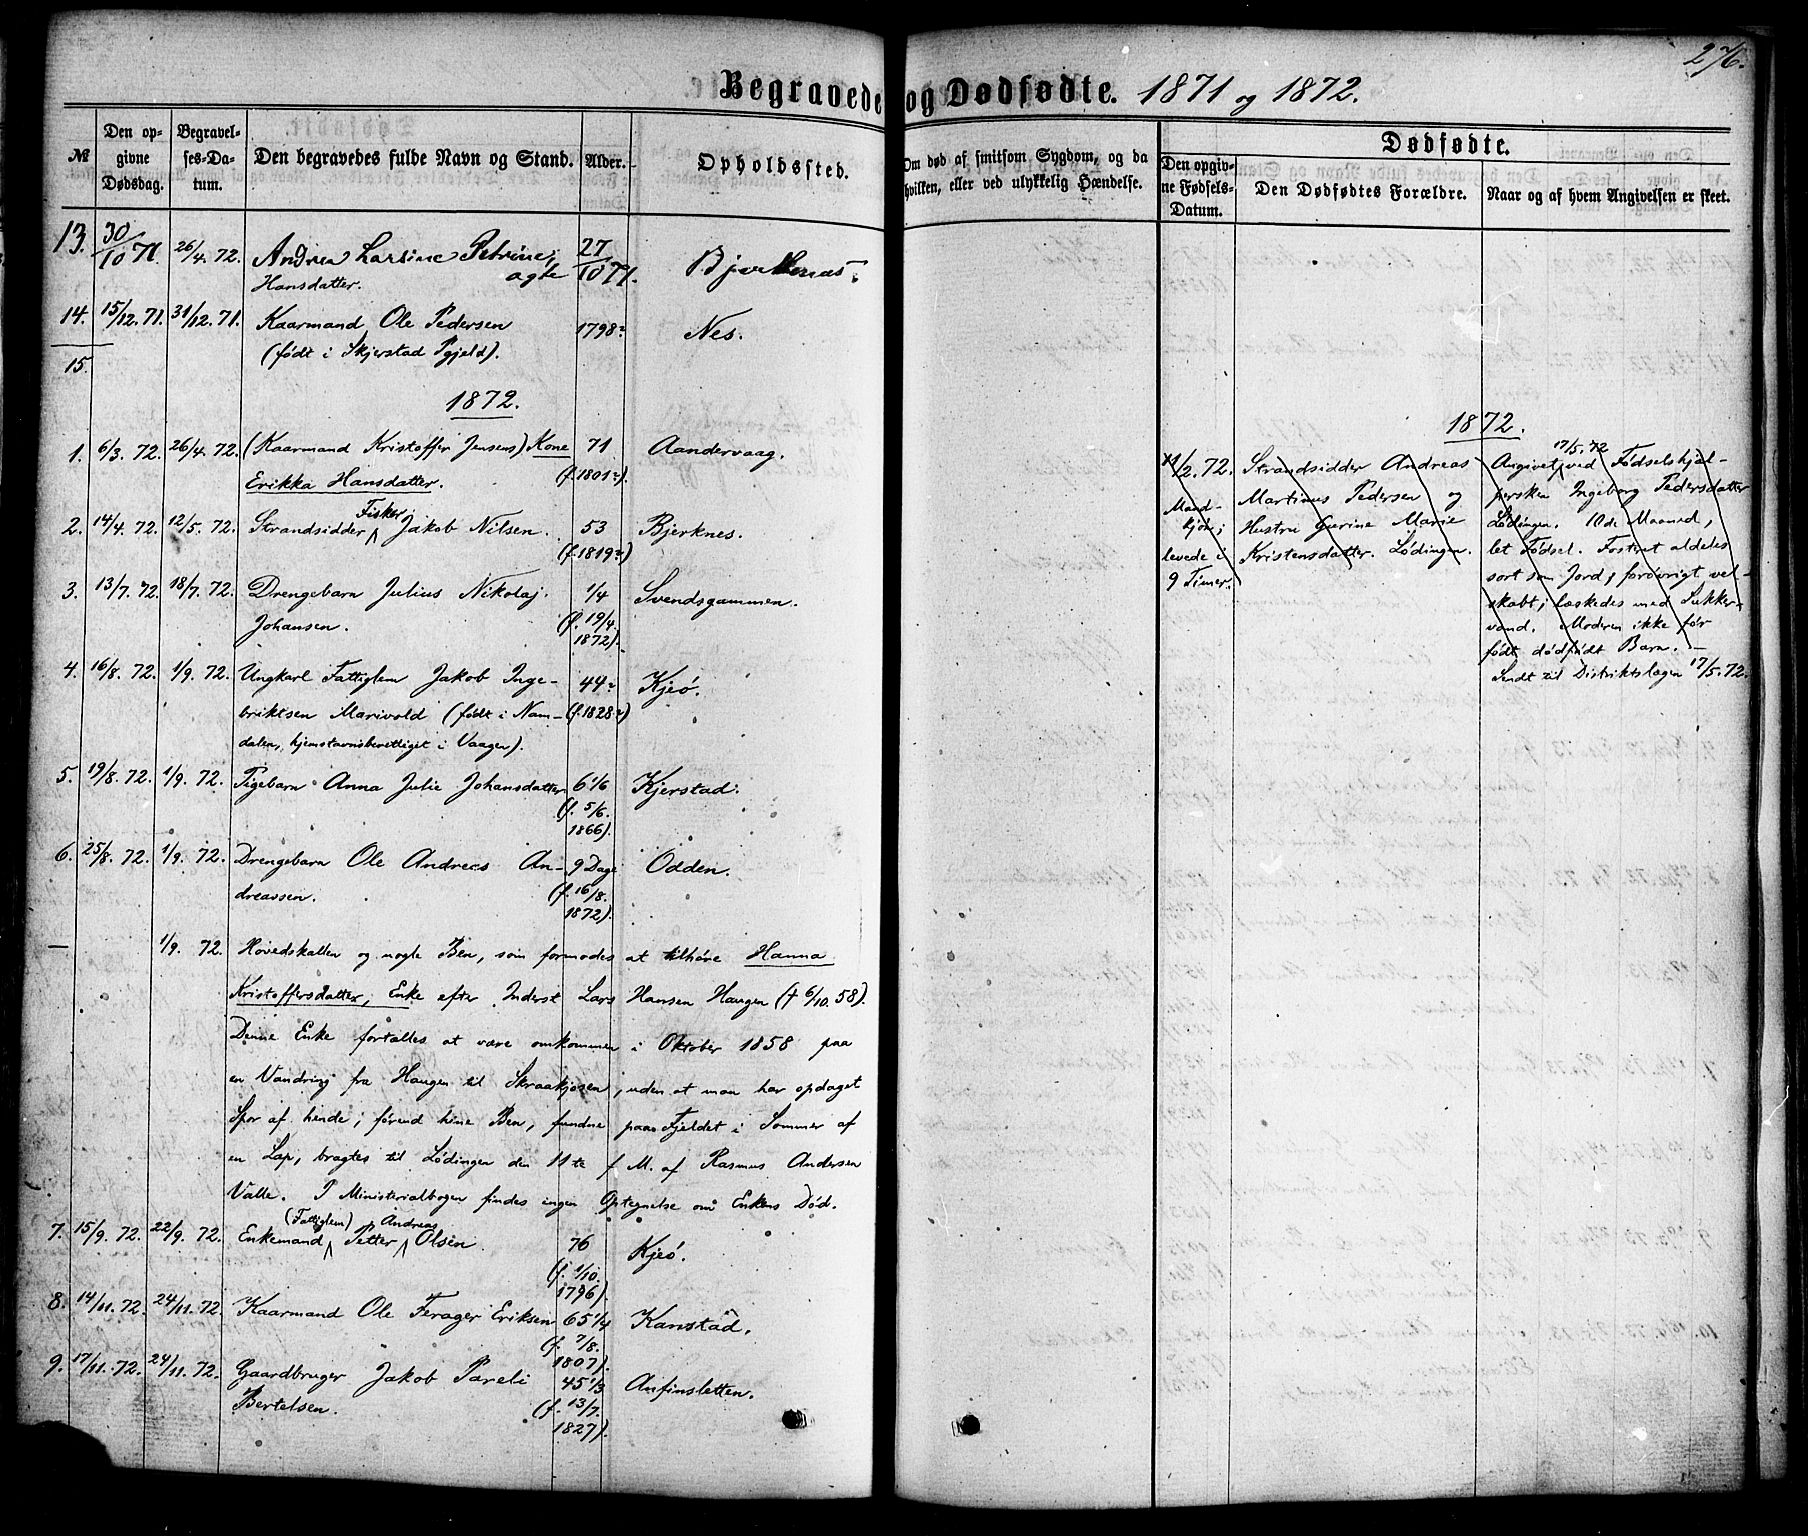 276.
Begravede og Dødfødte. 1871 og 1872.
№
Den op-
givne
Dødsdag.
Begravel-
ses-Da-
tum.
Den begravedes fulde Navn og Stand.
Alder.
Opholdssted.
Om død af smitsom Sygdom, og da
hvilken, eller ved ulykkelig Hændelse.
Dødfødte.
Den opgiv-
ne Fødsels-
Datum.
Den Dødfødtes Forældre.
Naar og af hvem Angivelsen er skeet.
13. 30/10 71. 26/4. 72. Andrea Larsine Petrine, 27/10 71. Bjerkenæs.
Hansdatter. ægte
14. 15/12. 71. 31/12. 71. Kaarmand Ole Pedersen 1798? Nes.
(født i Skjerstad Pgjeld).
15.
1872.
1. 6/3. 72. 26/4. 72. (Kaarmand Kristoffer Jensens) Kone 71 Aandervaag.
Erikka Hansdatter. (f. 1801?)
Fisker
2. 14/4. 72. 12/5. 72. Strandsidder Jakob Nilsen. 53 Bjerknes.
(f. 1819?)
3. 13/7. 72. 18/7. 72. Drengebarn Julius Nikolaj 1/4 Svendsgammen.
Johansen. (f. 19/4.
1872).
4. 16/8. 72. 1/9. 72. Ungkarl Fattiglem Jakob Inge- 44? Kjeö.
briktsen Marivold (født i Nam- (f. 1828?)
dalen, hjemstavnsberettiget i Vaagen).
5. 19/8. 72. 1/9. 72. Pigebarn Anna Julie Johansdatter 6 1/6 Kjerstad.
(f. 5/6.
1866).
6. 25/8. 72. 1/9. 72. Drengebarn Ole Andreas An- 9 Dage Odden.
dreassen. (f. 16/8.
1872).
— 1/9. 72. Hovedskallen og nogle Ben, som formodes at tilhøre Hanna
Kristoffersdatter, Enke efter Inderst Lars Hansen Haugen († 6/10. 58).
Denne Enke fortaltes at være omkommen i Oktober 1858 paa
en Vandring fra Haugen til Skraakjosen, uden at man har opdaget
Spor af hende, førend hine Ben, fundne paa Fjeldet i Sommer af
en Lap, bragtes til Lødingen den 11te f. M. af Rasmus Andersen
Valle. I Ministerialbogen findes ingen Optegnelse om Enkens Død.
(Fattiglem) Andreas
7. 15/9. 72. 22/9. 72. Enkemand Petter Olsen. 76 Kjeö.
(f. 1/10.
1796).
8. 14/11. 72. 24/11. 72. Kaarmand Ole Ferager Eriksen 65 1/4 Kanstad.
(f. 7/8.
1807).
9. 17/11. 72. 24/11. 72. Gaardbruger Jakob Pareli 45 1/3 Anfinsletten.
Bertelsen. (f. 13/7.
1827).
1872.
17/5. 72
11/2. 72. Strandsidder Andreas Angivet ved Fødselshjæl-
Mand- Martinus Pedersen og persken Ingeborg Pedersdatter
kjøn; Hustru Gurine Marie Lødingen. 10de Maaned,
levede i Kristensdatter. Lødingen. let Fødsel. Fosteret aldeles
9 Timer. sort som Jord, forøvrigt vel-
skabt, læskedes med Sukker-
vand. Moderen ikke før
født dødfødt Barn. —
Sendt til Distriktslægen 17/5. 72.